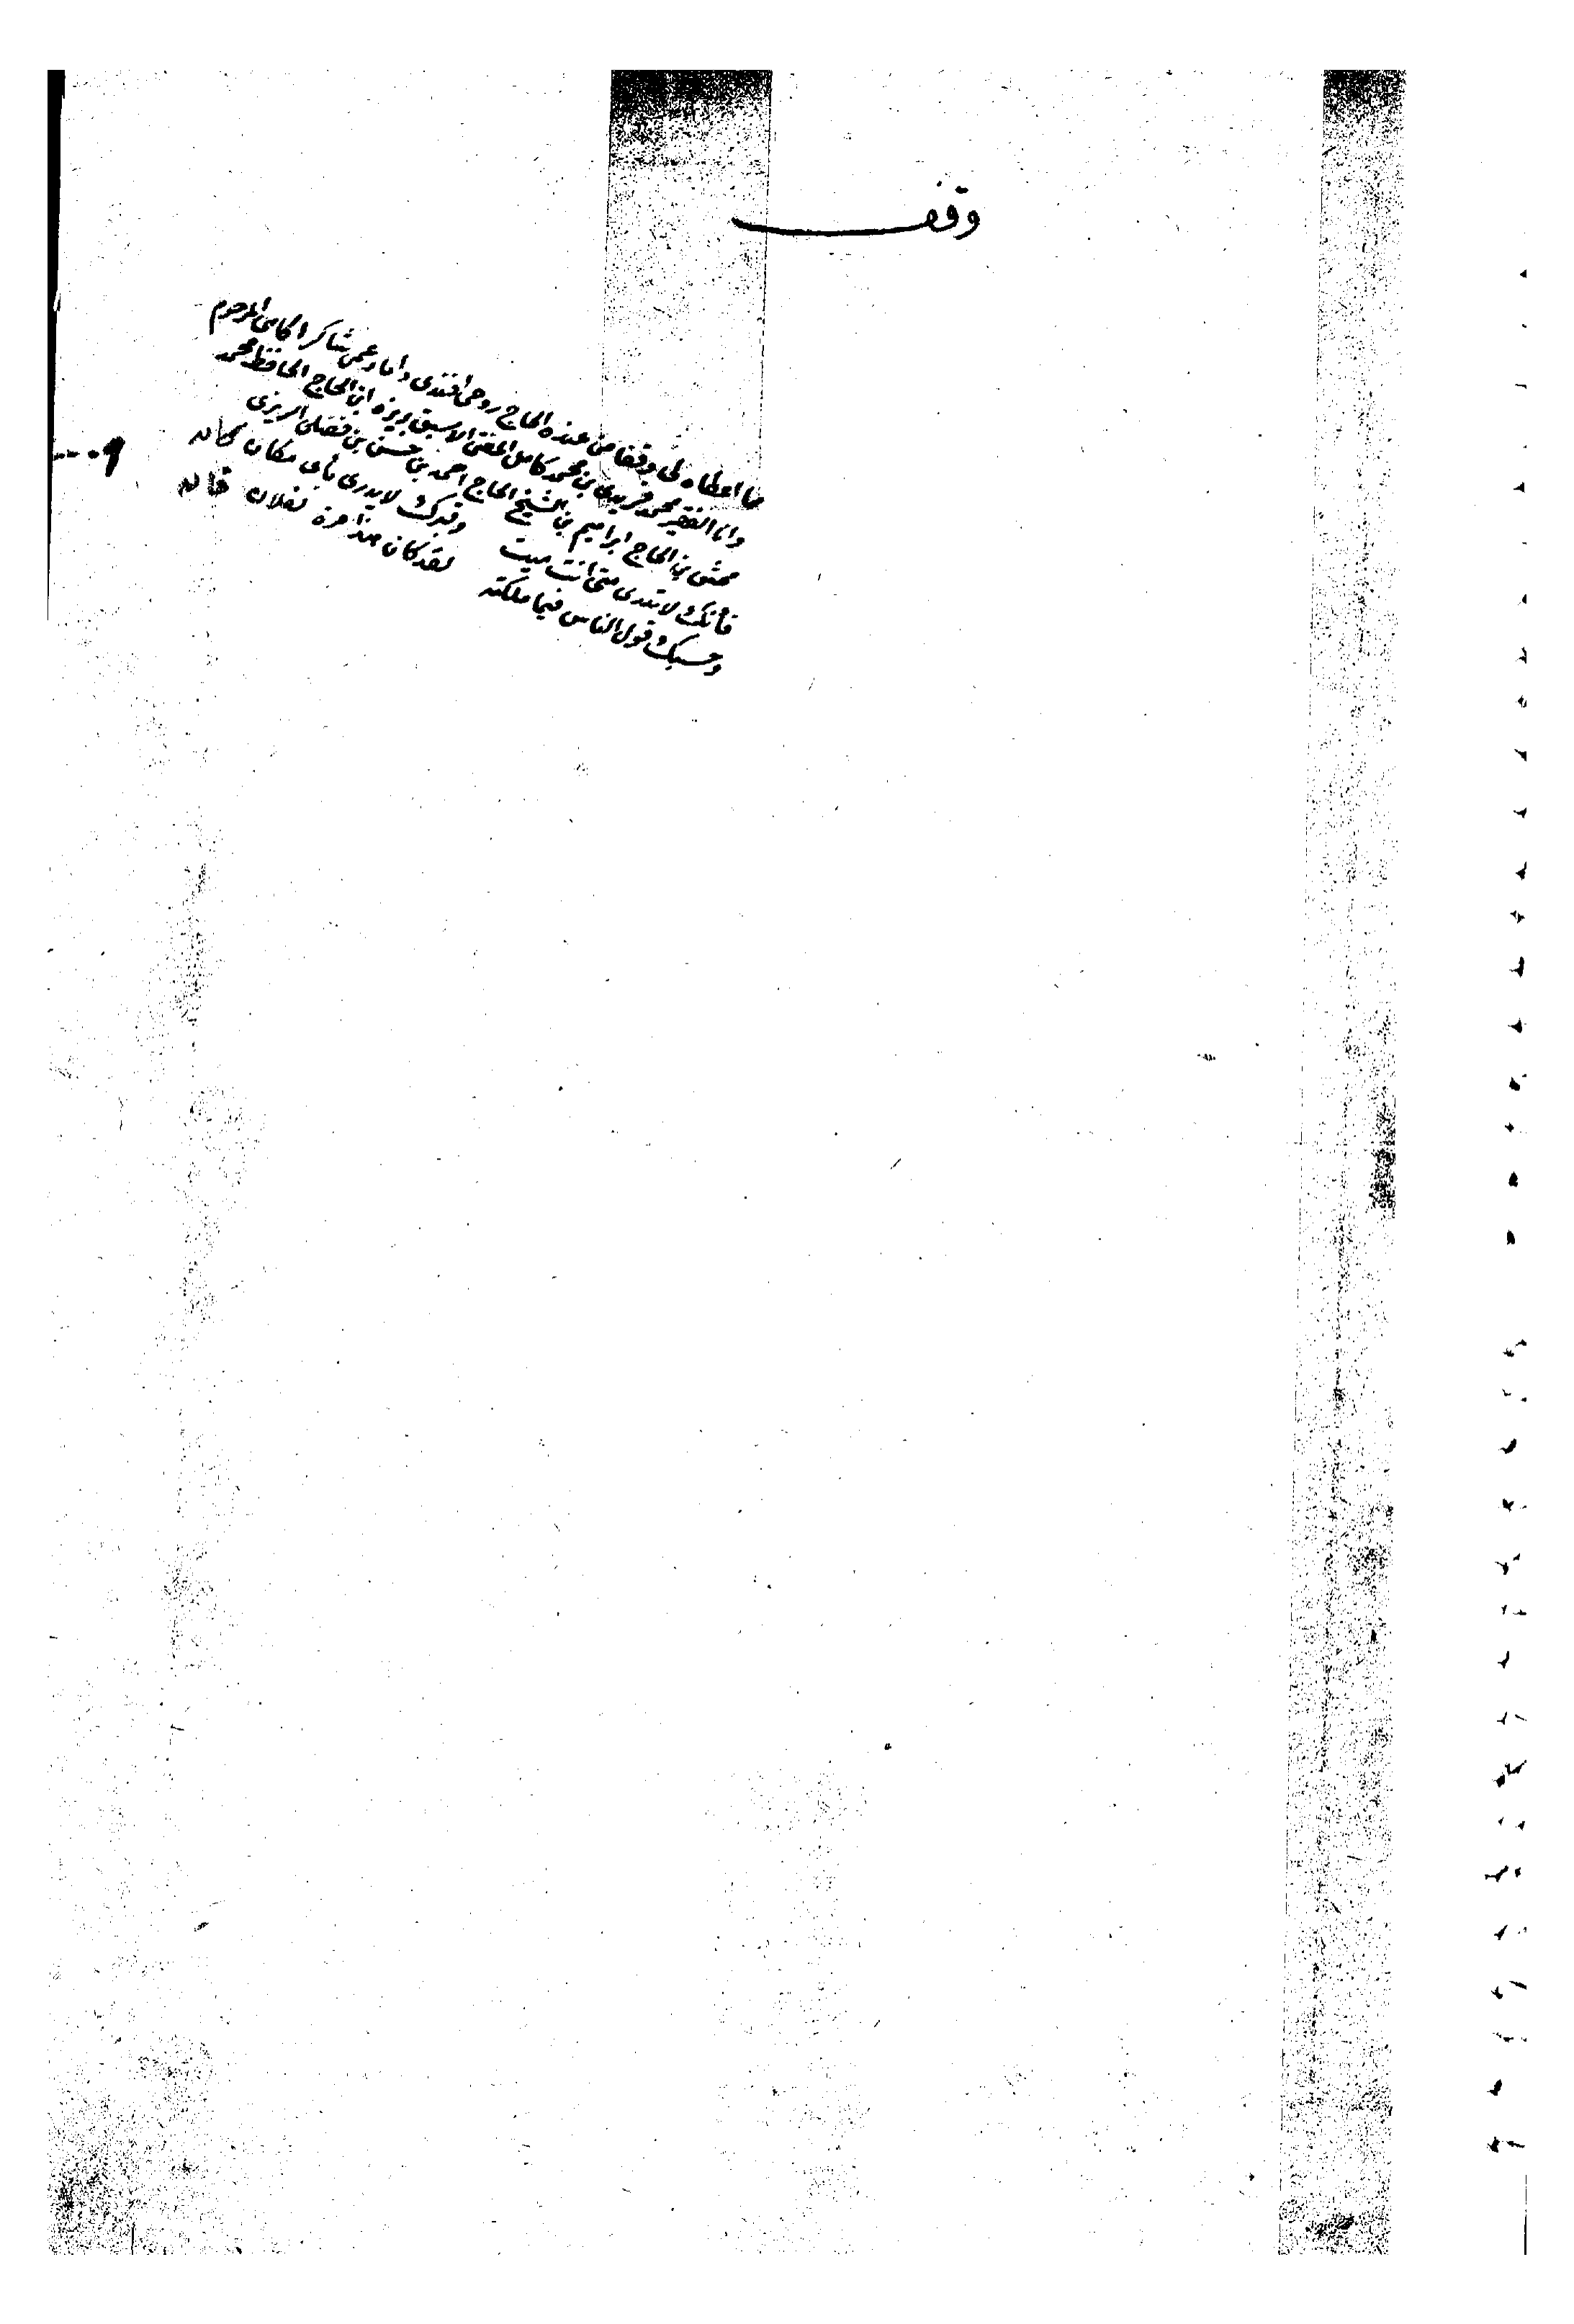 وقف
مما اعطاه لى وقفا من عنده الحاج روحى افندى داماد عمى شاكر الكامى المرحوم
وانا الفقير محمد فريدى بن محمد كامل المفتى الاسبق بريزه ابن الحاج الحافظ محمد
بن الحاج ابراهيم بن الشيخ الحاج احمد بن حسن بن فضلى الريزى
فأنك لا تدرى متى انت ميت وقبرك لا يدرى بأى مكان
وحسبك قول الناس فيما ملكته لقد كان هذا مرة لفلان